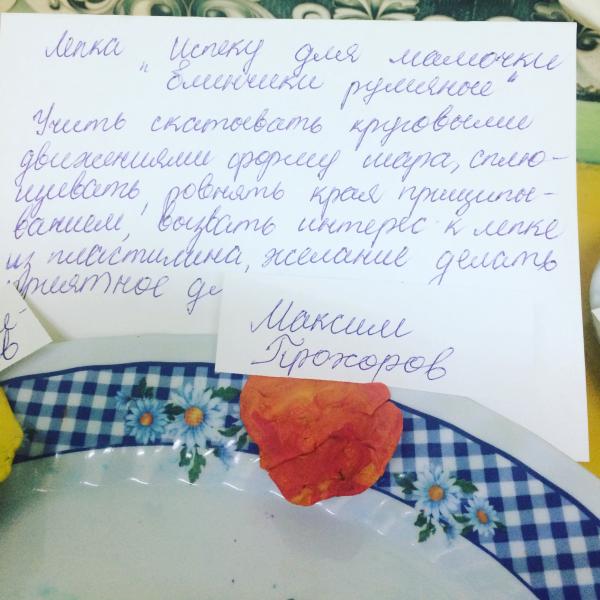 Лепка „Испеку для мамочки
блинчики румяные"
Учить скатывать круговыми
движениями форму шара, сплю-
щивать, ровнять края прищипы-
ванием, вызвать интерес к лепке
из пластилина, желание делать
приятное де
Максим
Прохоров